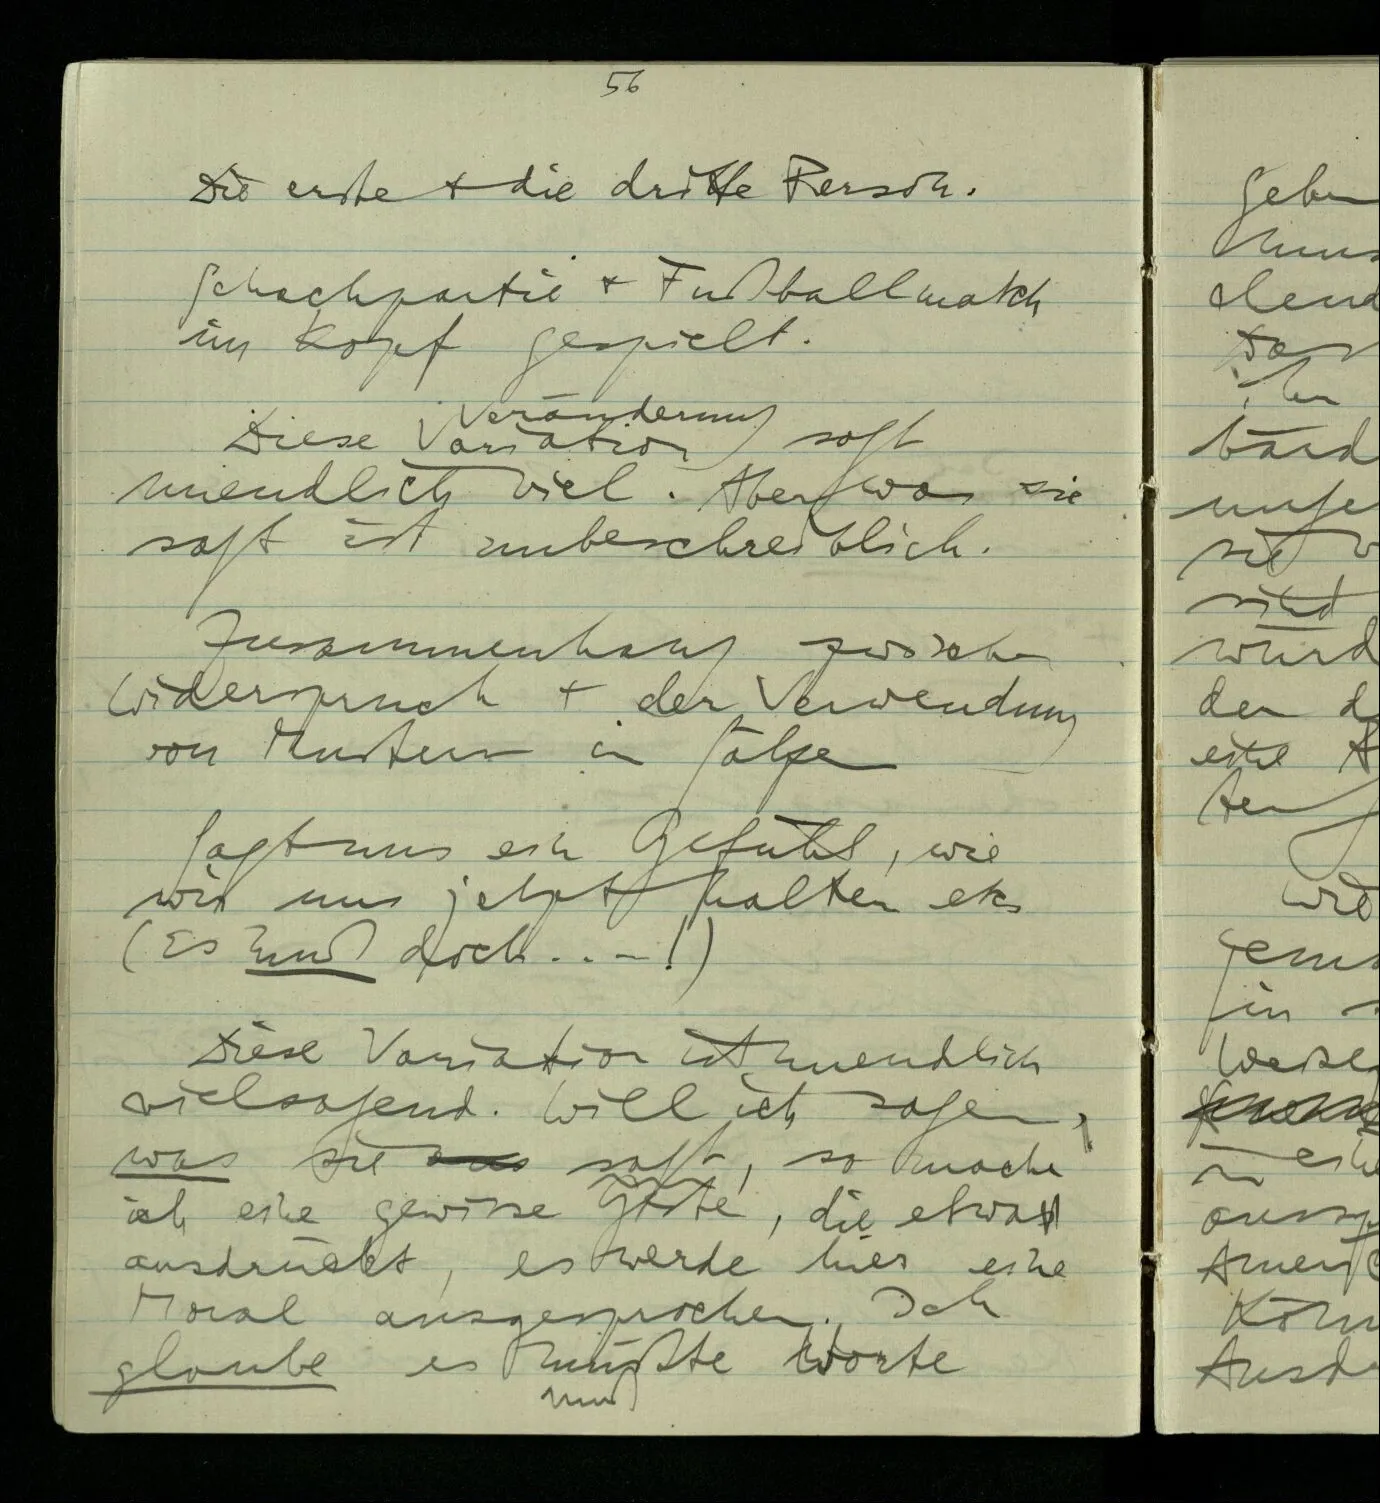 56
Die erste + die dritte Person.
Schachpartie + Fußballmatch
im Kopf gespielt.
Veränderung
Diese Variation sagt
unendlich viel. Aber was sie
sagt ist unbeschreiblich.
Zusammenhang zwischen
Widerspruch + der Verwendung
von Mustern in
Sagt uns ein Gefühl, wie
wir uns jetzt halten etc
(Es muß doch . . . – !)
Diese Variation ist unendlich
vielsagend. Will ich sagen,
was sie sagt, so mache
ich eine gewisse Geste, die etwa
ausdrückt, es werde hier eine
Moral ausgesprochen. Ich
glaube es müßte Worte
muß
geben
sie
sind
der
eine
wie
in